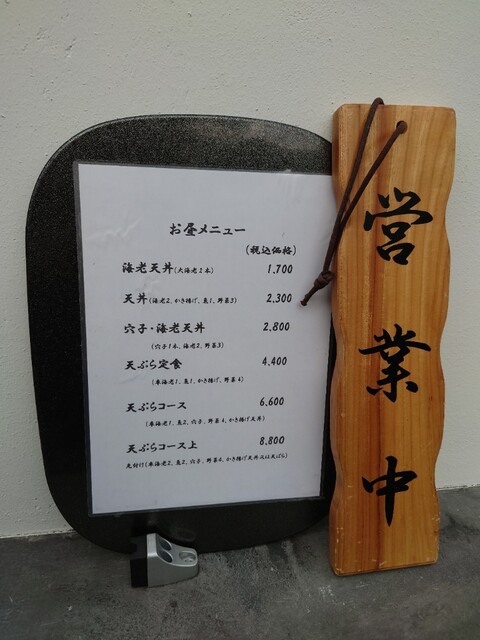 お昼メニュー
(税込価格)
海老天丼(大海老2本) 1.700
天丼(海老2、かき揚げ、魚1、野菜3) 2.300
穴子・海老天丼 2.800
(穴子1本、海老2、野菜3)
天ぷら定食 4.400
(車海老1、魚1、かき揚げ、野菜4)
天ぷらコース 6.600
(車海老1、魚2、穴子、野菜4、かき揚げ天丼)
天ぷらコース上 8.800
先付け(車海老2、魚2、穴子、野菜4、かき揚げ天丼又は天ばら)
営業中